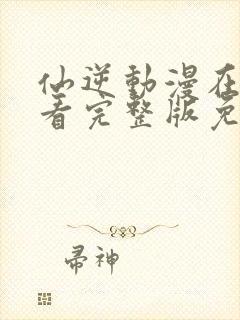 仙逆動漫在
看完整版免
帚神